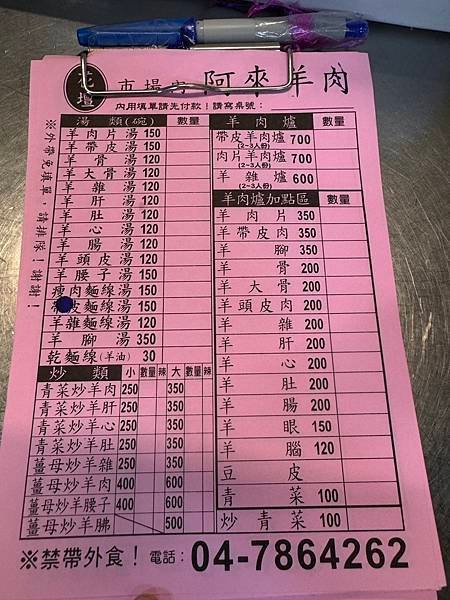 花壇 市場內 阿來羊肉
內用填單請先付款！請寫桌號：
※外帶免填單，請排隊！謝謝！
湯類(碗) 數量
羊肉片湯 150
羊帶皮湯 150
羊骨湯 120
羊大骨湯 120
羊雜湯 120
羊肝湯 120
羊肚湯 120
羊心湯 120
羊腸湯 120
羊頭皮湯 120
羊腰子湯 150
瘦肉麵線湯 150
帶皮麵線湯 150
羊雜麵線湯 120
羊腳湯 350
乾麵線(羊油) 30
炒類 小 數量 辣 大 數量 辣
青菜炒羊肉 250 350
青菜炒羊肝 250 350
青菜炒羊心 250 350
青菜炒羊肚 250 350
薑母炒羊雜 250 350
薑母炒羊肉 400 600
薑母炒羊腰子 400 600
薑母炒羊腦 500
羊肉爐 數量
帶皮羊肉爐 700
(2~3人份)
肉片羊肉爐 700
(2~3人份)
羊雜爐 600
(2~3人份)
羊肉爐加點區 數量
羊肉片 350
羊帶皮肉 350
羊腳 350
羊骨 200
羊大骨 200
羊頭皮肉 200
羊雜 200
羊肝 200
羊心 200
羊肚 200
羊腸 200
羊眼 150
羊腦 120
豆皮
青菜 100
炒青菜 100
※禁帶外食！ 電話：04-7864262